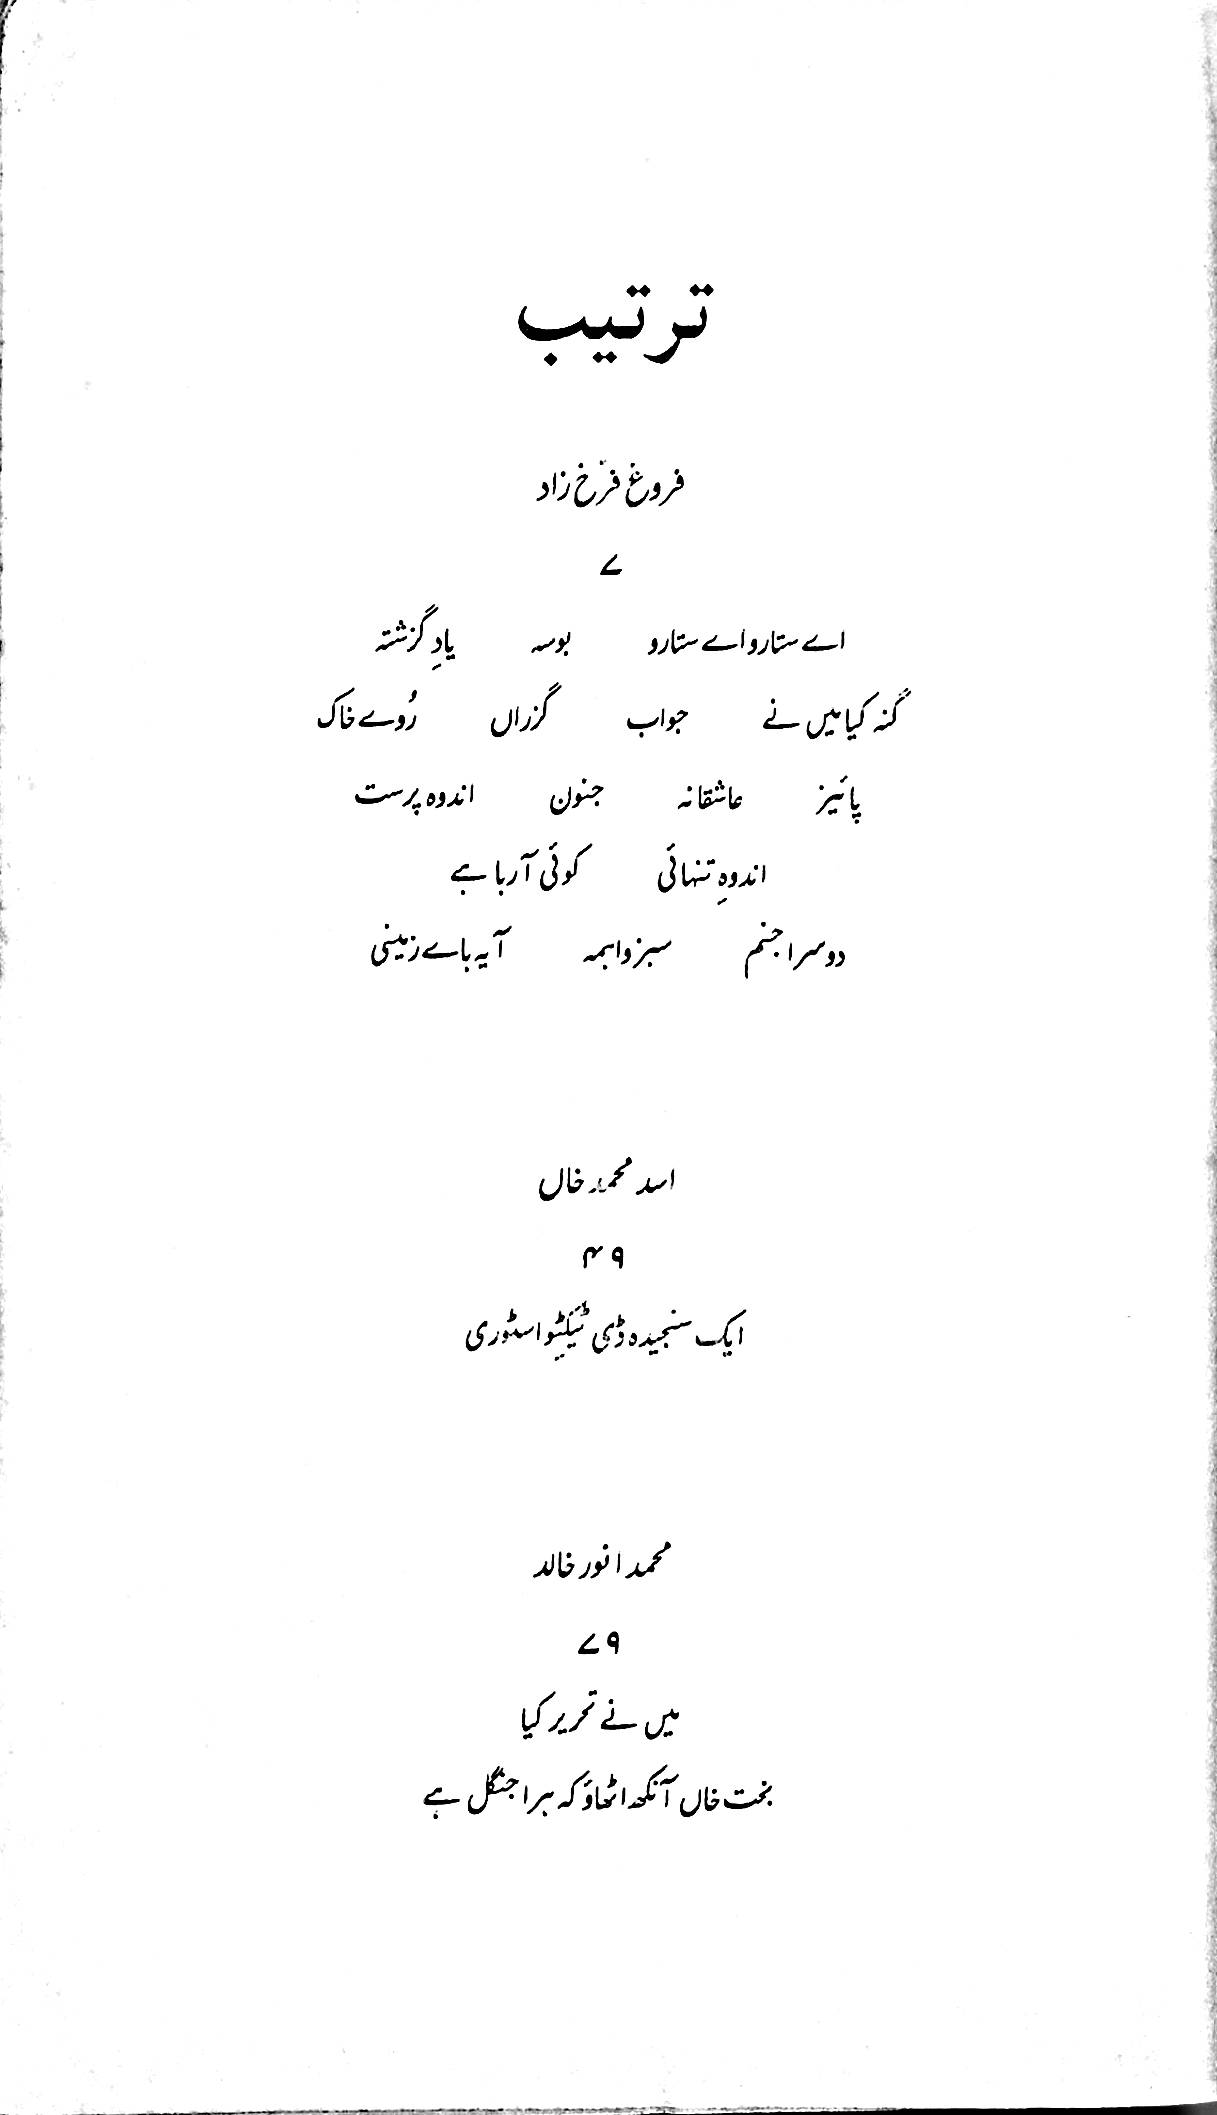 ترتیب
فروغ فرّخ زاد
۷
اے ستارو اے ستارو بوسہ یادِ گزشتہ
گنہ کیا میں نے جواب گزراں رُوے خاک
پائیز عاشقانہ جنون اندوہ پرست
اندوہِ تنہائی کوئی آ رہا ہے
دوسرا جنم سبز واہمہ آیہ ہاے زمینی
اسد محمد خاں
۴۹
ایک سنجیدہ ڈی ٹیکٹِو اسٹوری
محمد انور خالد
۷۹
میں نے تحریر کیا
بخت خاں آنکھ اٹھاؤ کہ ہرا جنگل ہے